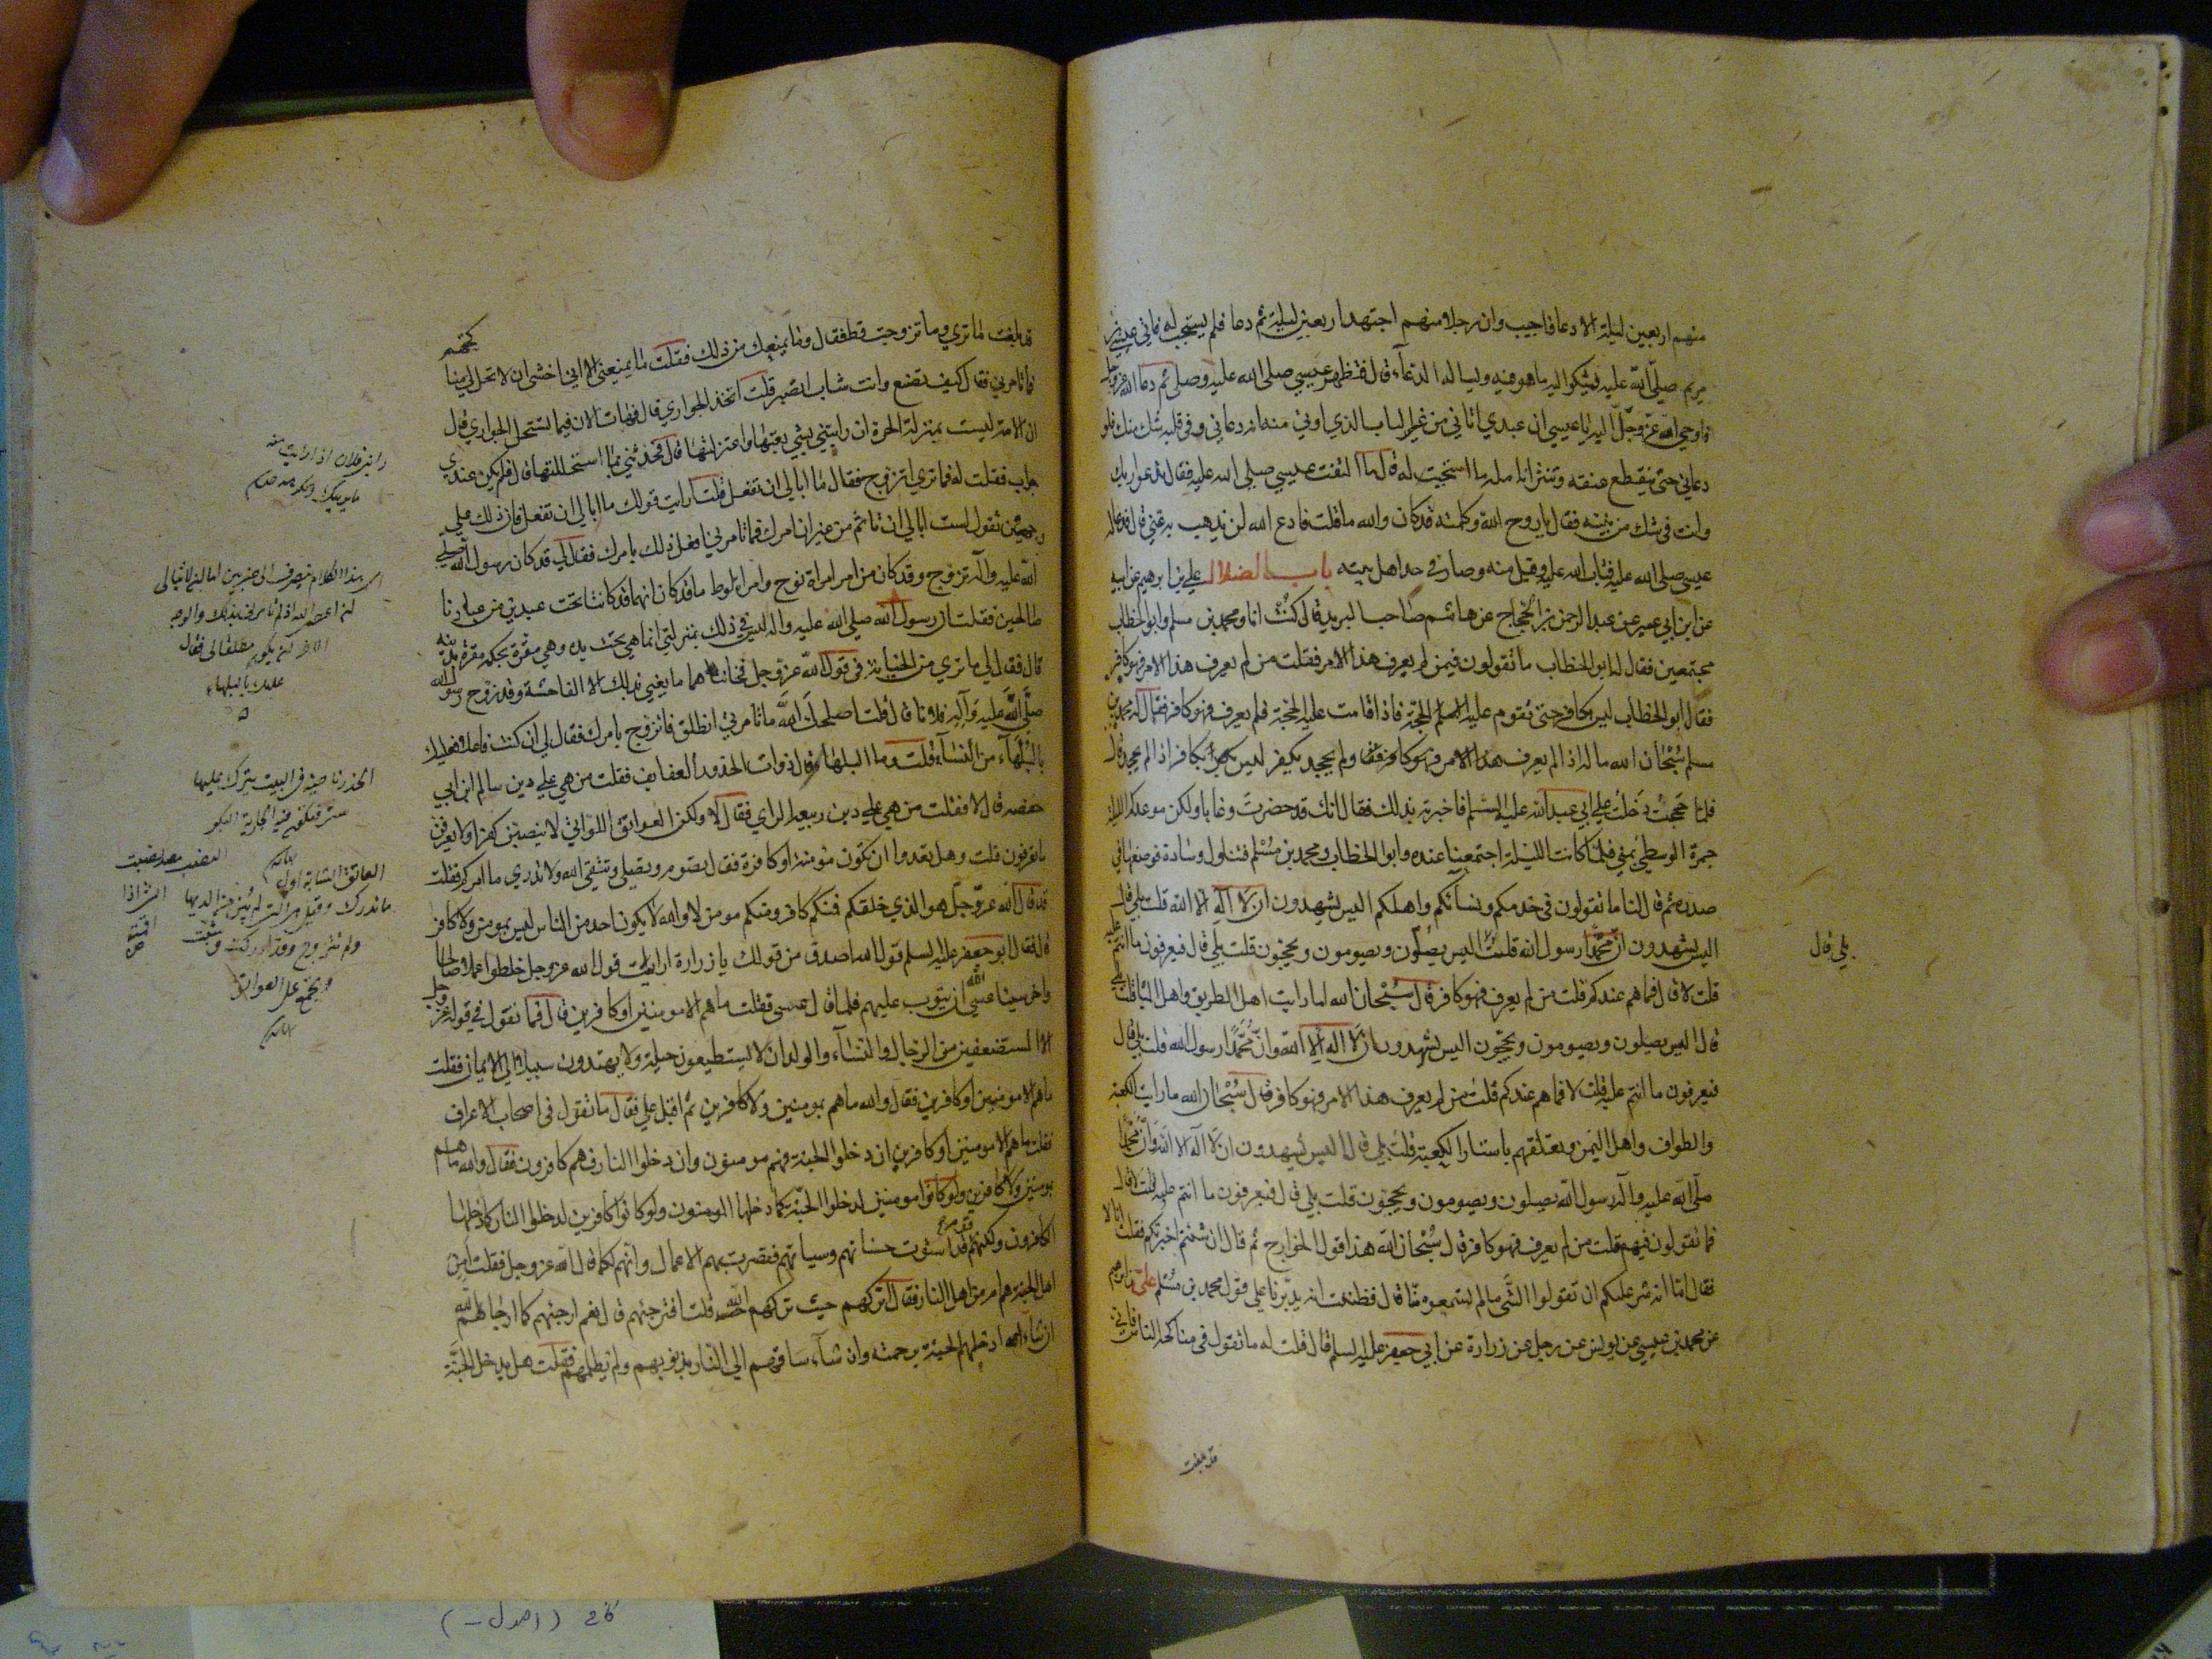 منهم اربعين ليلة الا دعا فاجيب وان رجلا منهم اجتهد اربعين ليلة ثم دعا فلم يستجب له فاتى عيسى بن
مريم صلى الله عليه يشكوا اليه ما هو فيه ويساله الدعاء قال فتطهر عيسى صلى الله عليه وصلى ثم دعا الله عز وجل
فاوحى الله عز وجل اليه يا عيسى ان عبدي اتاني من غير الباب الذي اوتي منه انه دعاني وفي قلبه شك منك فلو
دعاني حتى ينقطع عنقه وتنتثر انامله ما استجبت له قال فالتفت عيسى صلى الله عليه فقال تدعو ربك
وانت في شك من نبيه فقال يا روح الله وكلمته قد كان والله ما قلت فادع الله لي ان يذهب به عني قال فدعا له
عيسى صلى الله عليه فتاب الله عليه وقبل منه وصار في حد اهل بيته باب الضلال علي بن ابرهيم عن ابيه
عن ابن ابي عمير عن عبد الرحمن بن الحجاج عن هاشم صاحب البريد قال كنت انا ومحمد بن مسلم وابو الخطاب
مجتمعين فقال لنا ابو الخطاب ما تقولون فيمن لم يعرف هذا الامر فقلت من لم يعرف هذا الامر فهو كافر
فقال ابو الخطاب ليس بكافر حتى تقوم عليه الحجة فاذا قامت عليه الحجة فلم يعرف فهو كافر فقال له محمد بن
مسلم سبحان الله ما له اذا لم يعرف ولم يجحد يكفر ليس بكافر اذا لم يجحد قال
فلما حججت دخلت على ابي عبد الله عليه السلم فاخبرته بذلك فقال انك قد حضرت وغابا ولكن موعدكم الليلة
جمرة الوسطى بمنى فلما كانت الليلة اجتمعنا عنده وابو الخطاب ومحمد بن مسلم فتناول وسادة فوضعها في
صدره ثم قال لنا ما تقولون في خدمكم ونسائكم واهليكم اليس يشهدون ان لا اله الا الله قلت بلى قال
اليس يشهدون ان محمدا رسول الله قلت بلى قال اليس يصلون ويصومون ويحجون قلت بلى قال فيعرفون ما انتم عليه
بلى قال
قلت لا قال فما هم عندكم قلت من لم يعرف فهو كافر قال سبحان الله اما رايت اهل الطريق واهل المياه قلت بلى
قال اليس يصلون ويصومون ويحجون اليس يشهدون ان لا اله الا الله وان محمدا رسول الله قلت بلى قال
فيعرفون ما انتم عليه قلت لا قال فما هم عندكم قلت من لم يعرف هذا الامر فهو كافر قال سبحان الله ما رايت الكعبة
والطواف واهل اليمن وتعلقهم باستار الكعبة قلت بلى قال اليس يشهدون ان لا اله الا الله وان محمدا
صلى الله عليه واله رسول الله يصلون ويصومون ويحجون قلت بلى قال فيعرفون ما انتم عليه قلت لا قال
فما تقولون فيهم قلت من لم يعرف فهو كافر قال سبحان الله هذا قول الخوارج ثم قال ان شئتم اخبرتكم فقلت انا لا
فقال اما انه شر عليكم ان تقولوا الشي ما لم تسمعوه منا قال فظننت انه يديرنا على قول محمد بن مسلم علي بن ابرهيم
عن محمد بن عيسى عن يونس عن رجل عن زرارة عن ابي جعفر عليه السلم قال قلت له ما تقول في مناكحة الناس فاني
قد بلغت
قد بلغت ما تري وما تزوجت قط فقال وما يمنعك من ذلك فقلت ما يمنعني الا اني اخشى ان لا تحل لي مناكحتهم
فما تامرني فقال كيف تصنع وانت شاب اتصبر قلت اتخذ الجواري قال فهات الان فيما تستحل الجواري قال
ان الامة ليست بمنزلة الحرة ان رابتني بشي بعتها واعتزلتها قال فحدثني بما استحللتها قال فلم يكن عندي
جواب فقلت له فما تري اتزوج فقال ما ابالي ان تفعل قلت ارايت قولك ما ابالي ان تفعل فان ذلك على
وجهين تقول لست ابالي ان تاثم من غير ان امرك فما تامرني افعل ذلك بامرك فقال لي قد كان رسول الله صلى
الله عليه واله تزوج وقد كان من امر امراة نوح وامراة لوط ما قد كان انهما قد كانتا تحت عبدين من عبادنا
صالحين فقلت ان رسول الله صلى الله عليه واله ليس في ذلك بمنزلتي انما هي تحت يده وهي مقرة بحكمه مقرة بدينه
قال فقال لي ما تري من الخيانة في قول الله عز وجل فخانتاهما ما يعني بذلك الا الفاحشة وقد زوج رسول الله
صلى الله عليه وآله فلانا قال قلت اصلحك الله ما تامرني انطلق فاتزوج بامرك فقال لي ان كنت فاعلا فعليك
بالبلهاء من النساء قلت وما البلهاء قال ذوات الخدور العفايف فقلت من هي على دين سالم ابن ابي
حفصه قال لا فقلت من هي على دين ربيعة الراي فقال لا ولكن العواتق اللواتي لا ينصبن كفرا ولا يعرفن
ما تعرفون قلت وهل تعدوا ان تكون مؤمنة او كافرة فقال تصوم وتصلي وتتقي الله ولا تدري ما امركم فقلت
قد قال الله عز وجل هو الذي خلقكم فمنكم كافر ومنكم مومن لا والله لا يكون احد من الناس ليس بمومن ولا كافر
قال فقال ابو جعفر عليه السلم قول الله اصدق من قولك يا زرارة ارايت قول الله عز وجل خلطوا عملا صالحا
واخر سيئا عسى الله ان يتوب عليهم فلما قال عسى فقلت ما هم الا مومنين او كافرين قال فما تقول في قوله عز وجل
الا المستضعفين من الرجال والنساء والولدان لا يستطيعون حيلة ولا يهتدون سبيلا الى الايمان فقلت
ما هم الا مومنين او كافرين فقال والله ما هم بمومنين ولا كافرين ثم اقبل علي فقال ما تقول في اصحاب الاعراف
فقلت ما هم الا مومنين او كافرين ان دخلوا الجنة فهم مومنون وان دخلوا النار فهم كافرون فقال والله ما هم
بمومنين ولا كافرين ولو كانوا مومنين لدخلوا الجنة كما دخلها المومنون ولو كانوا كافرين لدخلوا النار كما دخلها
الكافرون ولكنهم قوم استوت حسناتهم وسياتهم فقصرت بهم الاعمال وانهم لكما قال الله عز وجل فقلت امن
اهل الجنة هم ام من اهل النار فقال اتركهم حيث تركهم الله قلت افترجئهم قال نعم ارجئهم كما ارجاهم الله
ان شاء الله ادخلهم الجنة برحمته وان شاء ساقهم الى النار بذنوبهم ولم يظلمهم فقلت هل يدخل الجنة
الخدر ناحية في البيت يترك عليها
ستر فتكون فيه الجارية البكر
العاتق الشابة اول
ما تدرك وقيل
ولم تتزوج وقد ادركت وشبت
ويجمع على العواتق
كافي (اصول -)